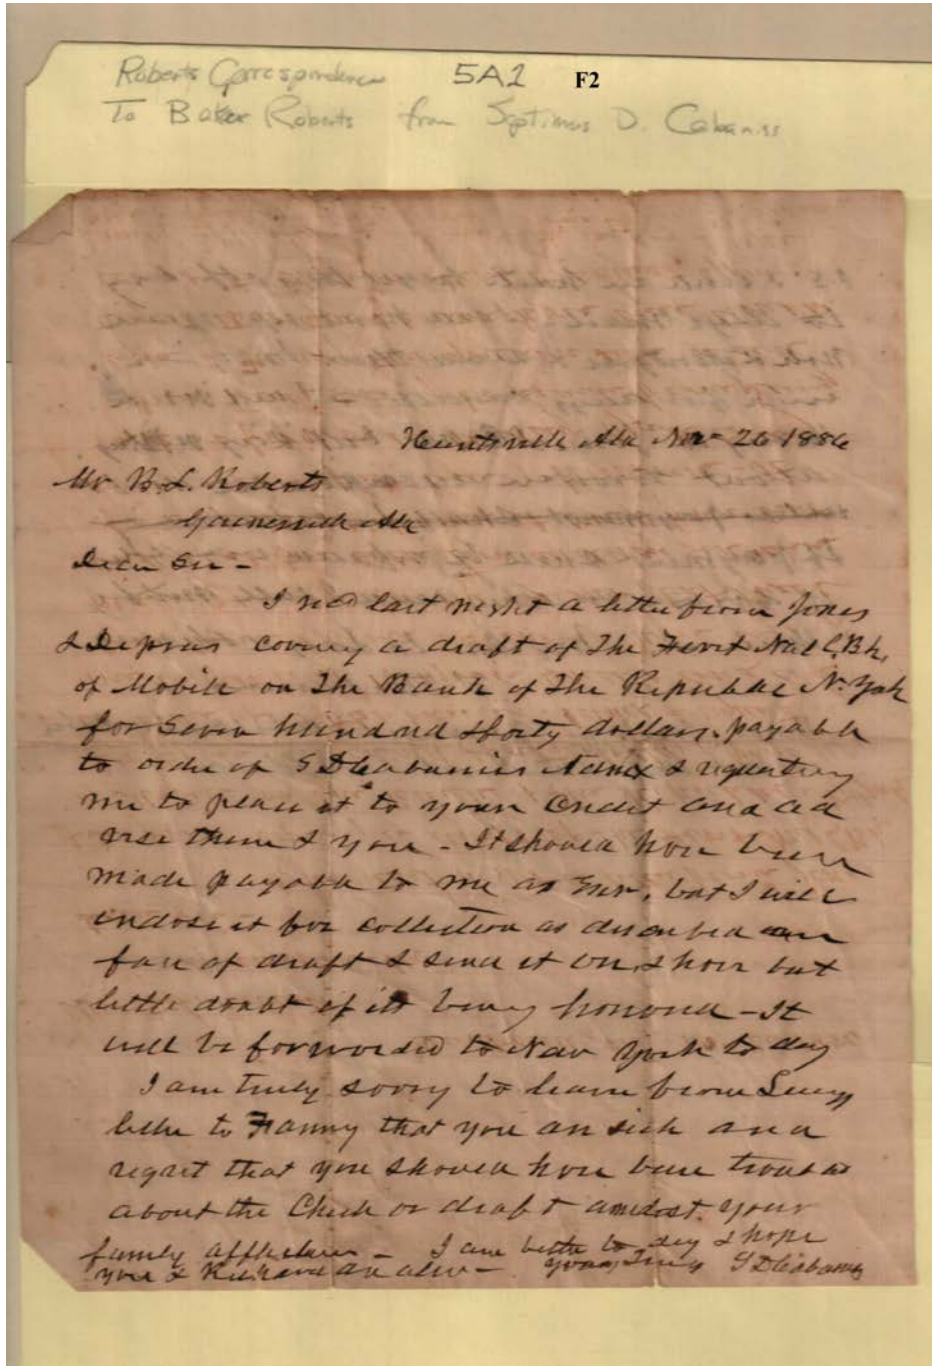 Roberts Correspondence 5A1 F2
To Baker Roberts from Septimus D. Cabaniss
Huntsville Ala Nov 26 1886
Mr B.L. Roberts
Gainesville Ala
Dear Sir -
I recd last night a letter from Jones
& covering a draft of The First Natl. Bk.
of Mobile on The Bank of The Republic N. York
for Seven hundred & forty dollars, payable
to order of S D Cabaniss & requesting
me to place it to your Credit and ad
vise them & you - It should have been
made payable to me as Exr, but I will
endorse it for collection as described on
face of draft & send it on, I have but
little doubt of its being honored - It
will be forwarded to New York to day
I am truly sorry to learn from
letter to Fanny that you are sick and
regret that you should have been troubled
about the Check or draft amidst your
family afflictions - I am better to day & hope
you & Richard are also - Yours Truly S D Cabaniss